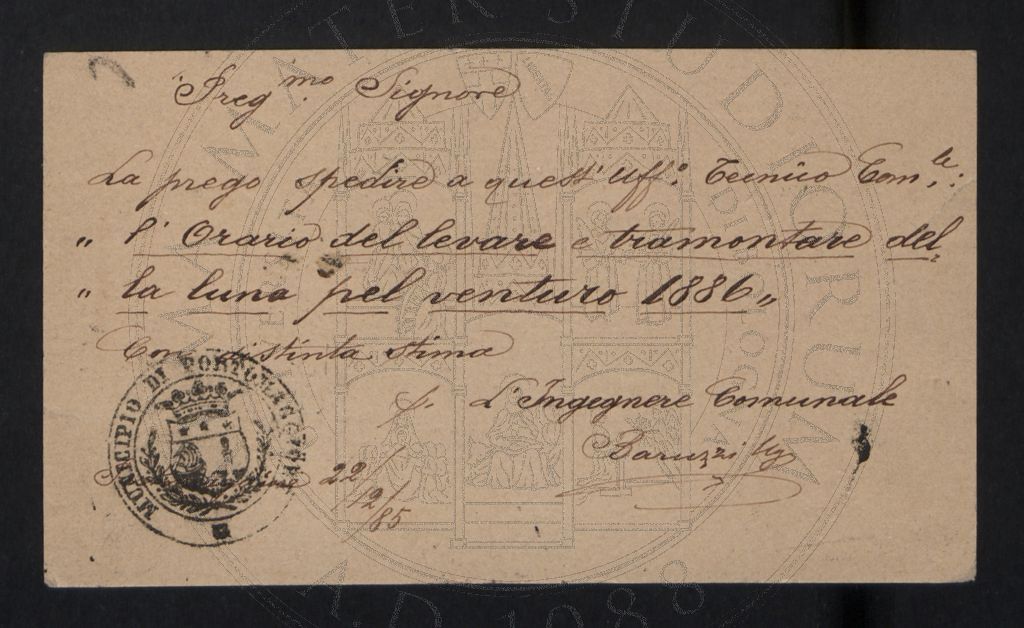 Preg.mo Signore
La prego spedire a quest' Uff.o Tecnico Com.le:
„ l' Orario del levare e tramontare del-
„ la luna pel venturo 1886„
Con distinta stima
p. L'Ingegnere Comunale
Baruzzi
22/12/85
MUNICIPIO DI PORTOMAGGIORE
ALMA MATER STUDIORUM
A.D. 1088